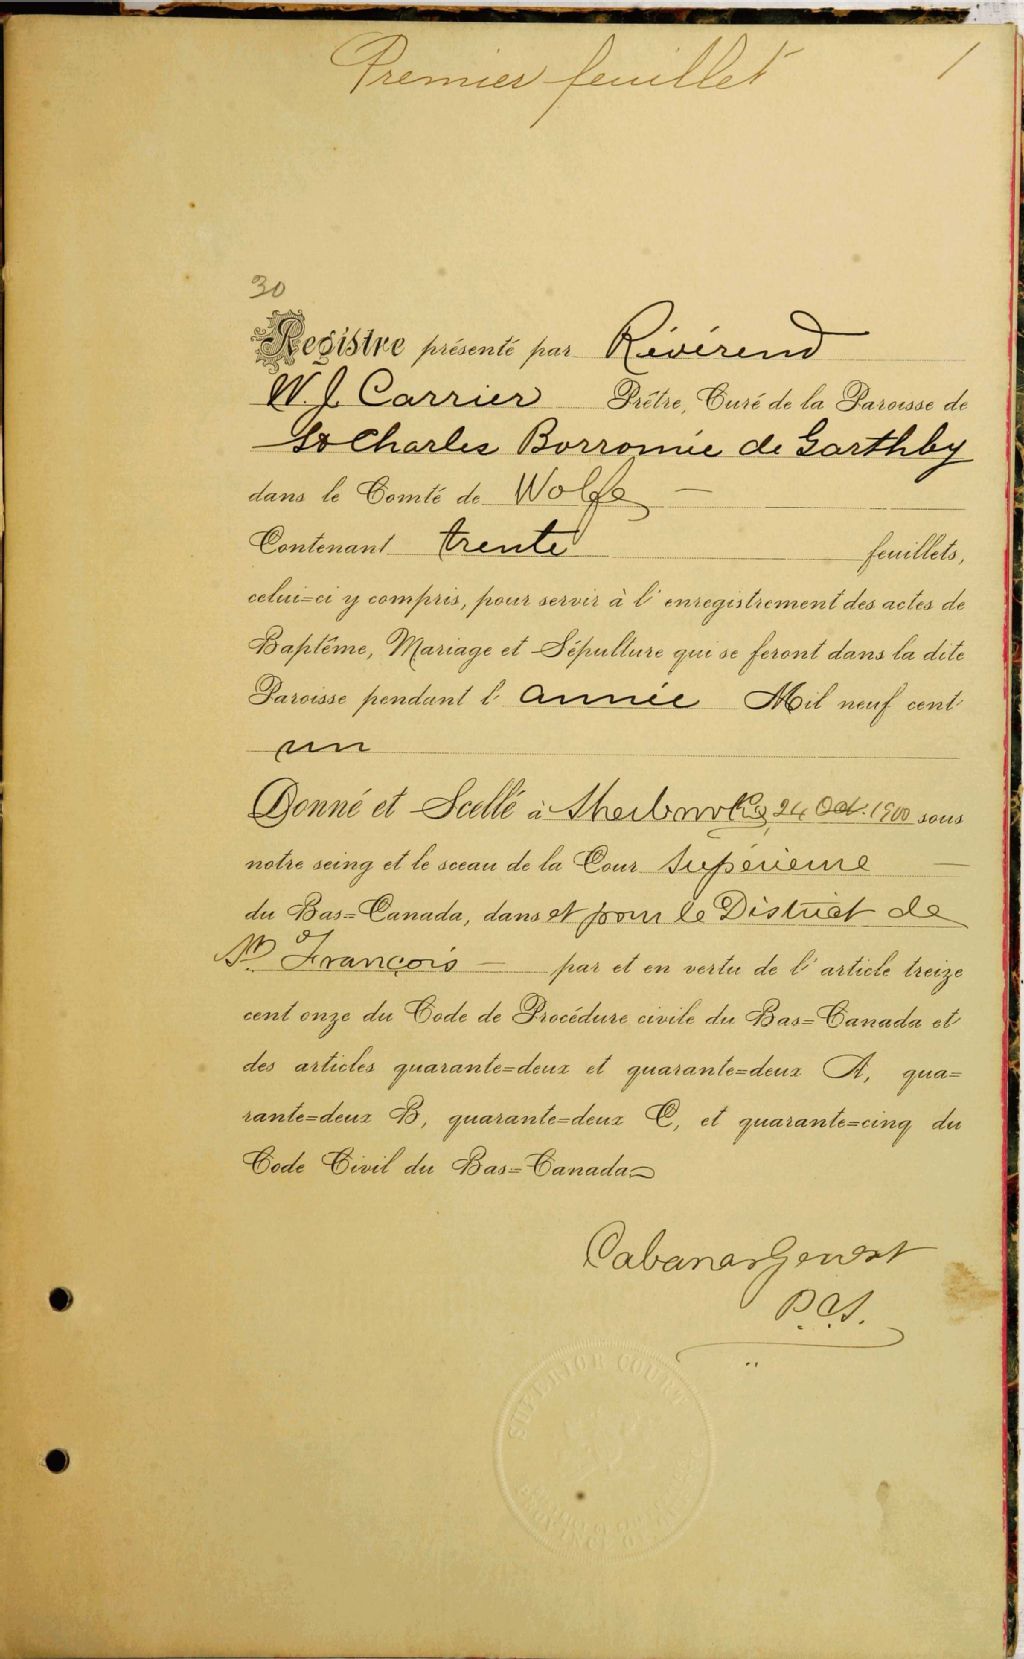 Premier feuillet 1
30
Registre présenté par Révérend
W. J. Carrier Prêtre, Curé de la Paroisse de
St Charles Borromée de Garthby
dans le Comté de Wolfe —
Contenant trente feuillets,
celui=ci y compris, pour servir à l'enregistrement des actes de
Baptême, Mariage et Sépulture qui se feront dans la dite
Paroisse pendant l'année Mil neuf cent
un
Donné et Scellé à Sherbrooke, 24 Oct. 1900 sous
notre seing et le sceau de la Cour Supérieure —
du Bas=Canada, dans et pour le District de
St. François — par et en vertu de l'article treize
cent onze du Code de Procédure civile du Bas=Canada et
des articles quarante=deux et quarante=deux A, qua=
rante=deux B, quarante=deux C, et quarante=cinq du
Code Civil du Bas=Canada
Cabana &amp; Genest
P.C.S.
SUPERIOR COURT
PROVINCE OF